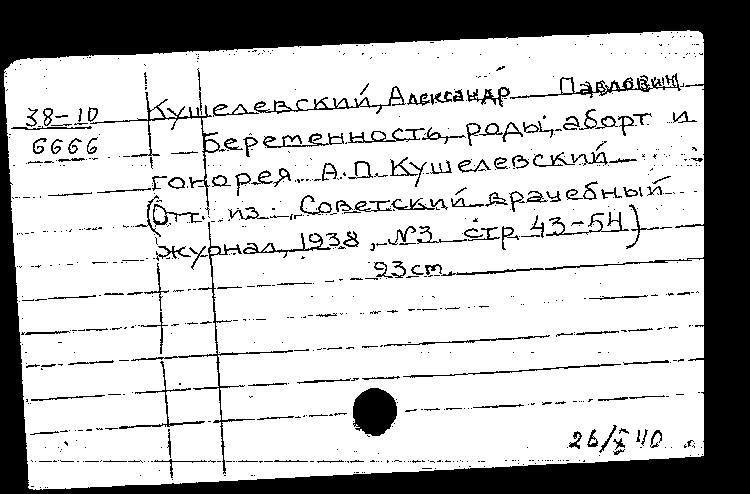 38-10 Кушелевский, Александр Павлович
6666 Беременность, роды, аборт и
гонорея. А.П. Кушелевский
(Отт. из: Советский врачебный
журнал, 1938, №3. стр 43-54)
23 cm.
26/X 40